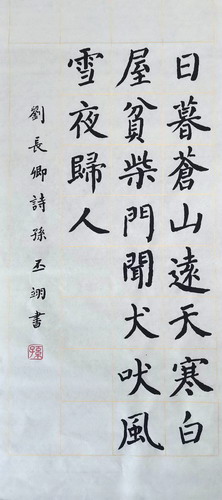 日暮蒼山遠天寒白
屋貧柴門聞犬吠風
雪夜歸人
劉長卿詩孫丕翊書